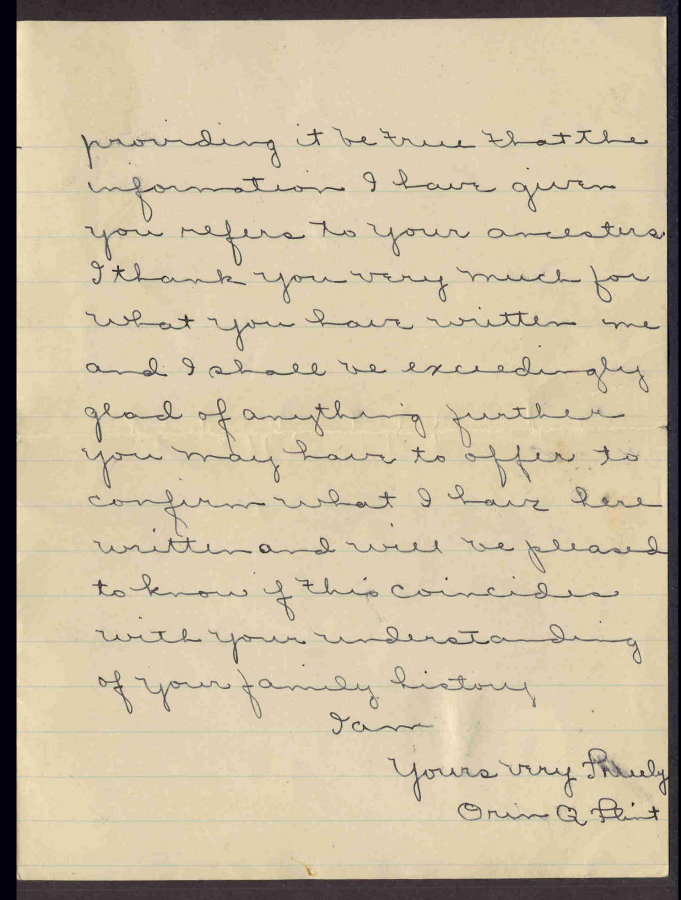 providing it be true that the
information I have given
you refers to your ancesters
I thank you very much for
what you have written me
and I shall be exceedingly
glad of anything further
you may have to offer to
confirm what I have here
written and will be pleased
to know if this coincides
with your understanding
of your family history
I am
Yours very Truely
Orin Q Flint